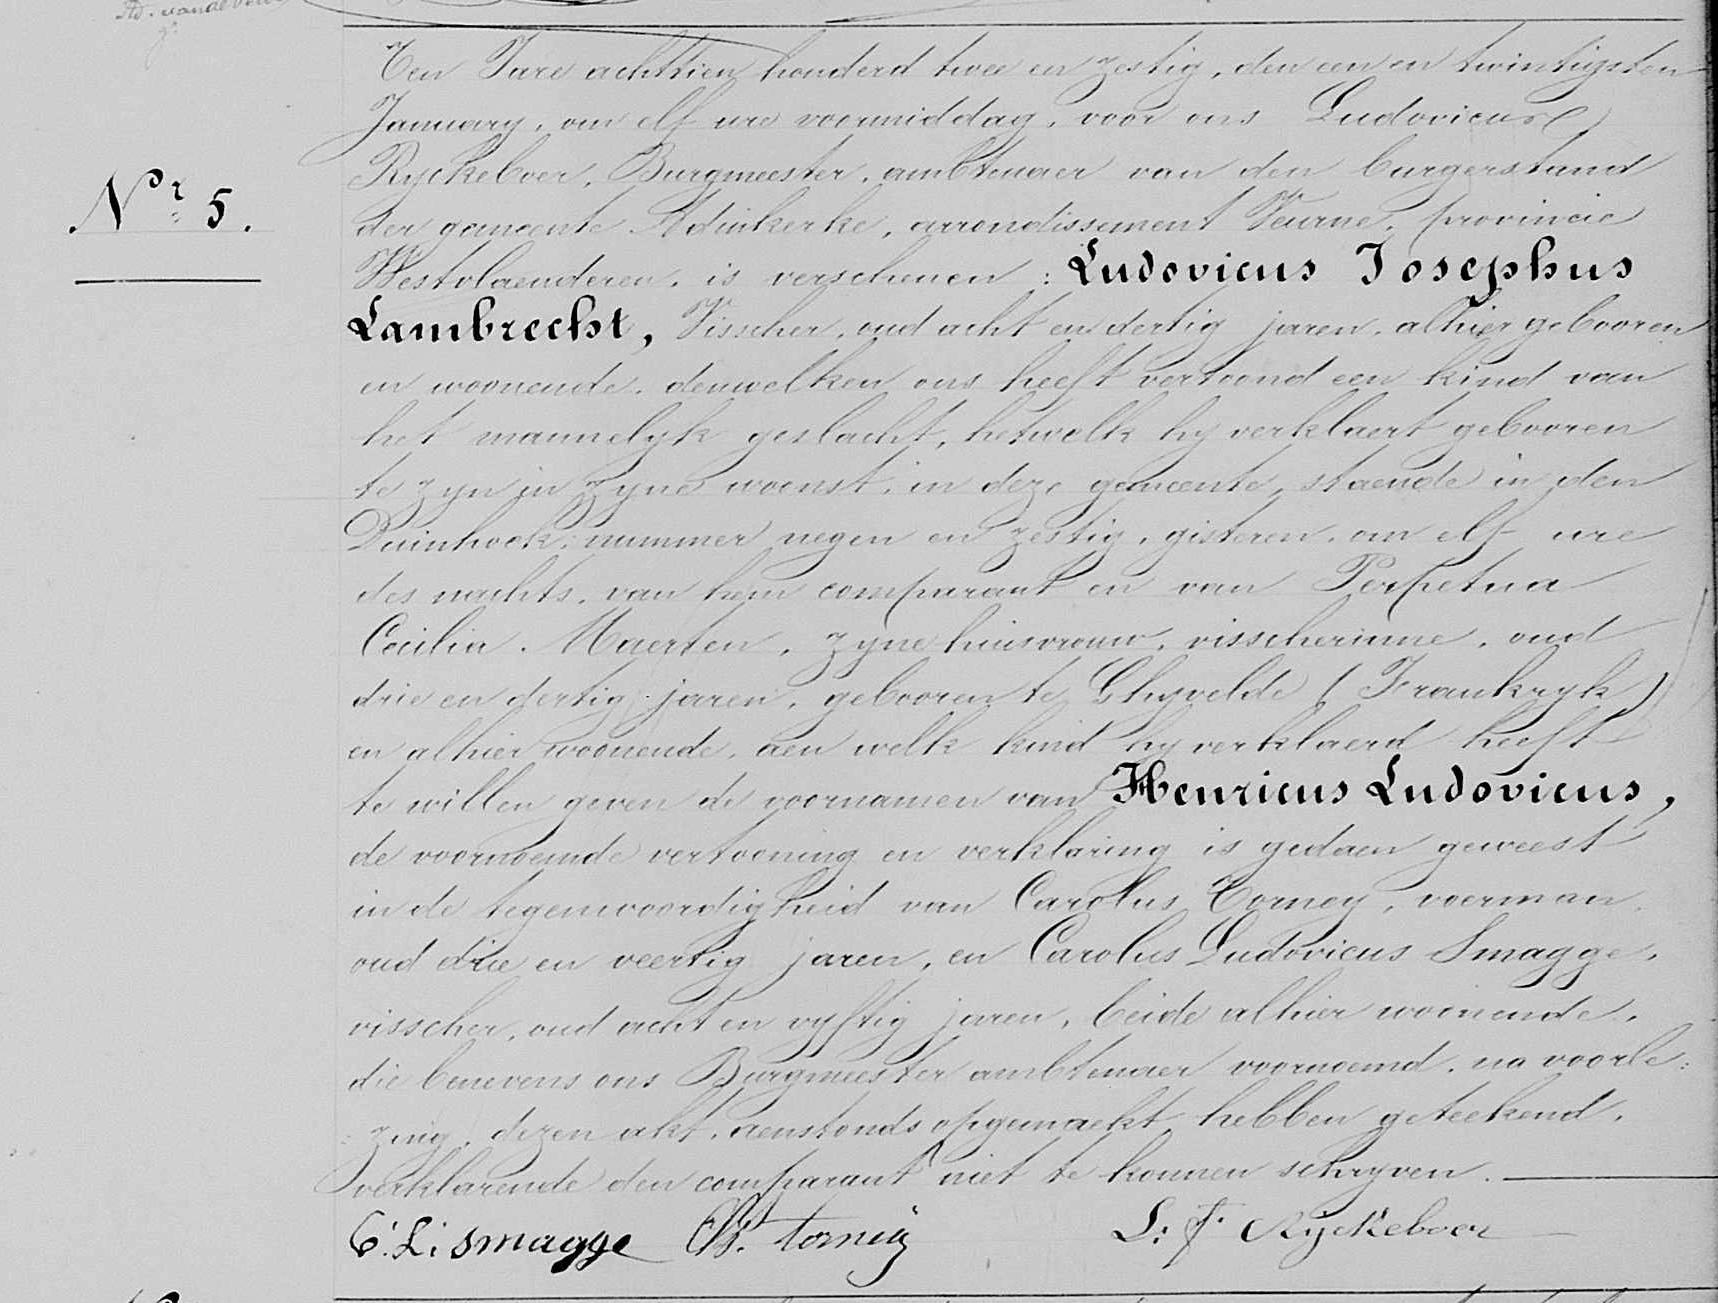 Nr 5.
Ten Jare achttien honderd twee en zestig, den een en twintigsten
January, om elf ure voormiddag, voor ons Ludovicus
Ryckeboer, Burgmeester, ambtenaer van den burgerstand
der gemeente Adinkerke, arrondissement Veurne, provincie
Westvlaenderen, is verschenen : Ludovicus Josephus
Lambrecht, Visscher, oud acht en dertig jaren, alhier gebooren
en woonende, denwelken ons heeft vertoond een kind van
het mannelyk geslacht, hetwelk hy verklaert gebooren
te zyn in zyne woonst, in deze gemeente, staende in den
Duinhoek, nummer negen en zestig, gisteren, om elf ure
des nachts, van hem comparant en van Perpetua
Cecilia Maerten, zyne huisvrouw, visscherinne, oud
drie en dertig jaren, gebooren te Ghyvelde (Frankryk)
en alhier woonende, aen welk kind hy verklaerd heeft
te willen geven de voornamen van Henricus Ludovicus,
de voornoemde vertooning en verklaring is gedaen geweest
in de tegenwoordigheid van Carolus Torney, voerman,
oud drie en veertig jaren, en Carolus Ludovicus Smagge,
visscher, oud acht en vyftig jaren, beide alhier woonende,
die benevens ons Burgmeester ambtenaer voornoemd, na voorle:
zing, dezen akt, aenstonds opgemaekt, hebben geteekend,
verklarende den comparant niet te konnen schryven.
C: L: Smagge Ch. torney L: F. Ryckeboer